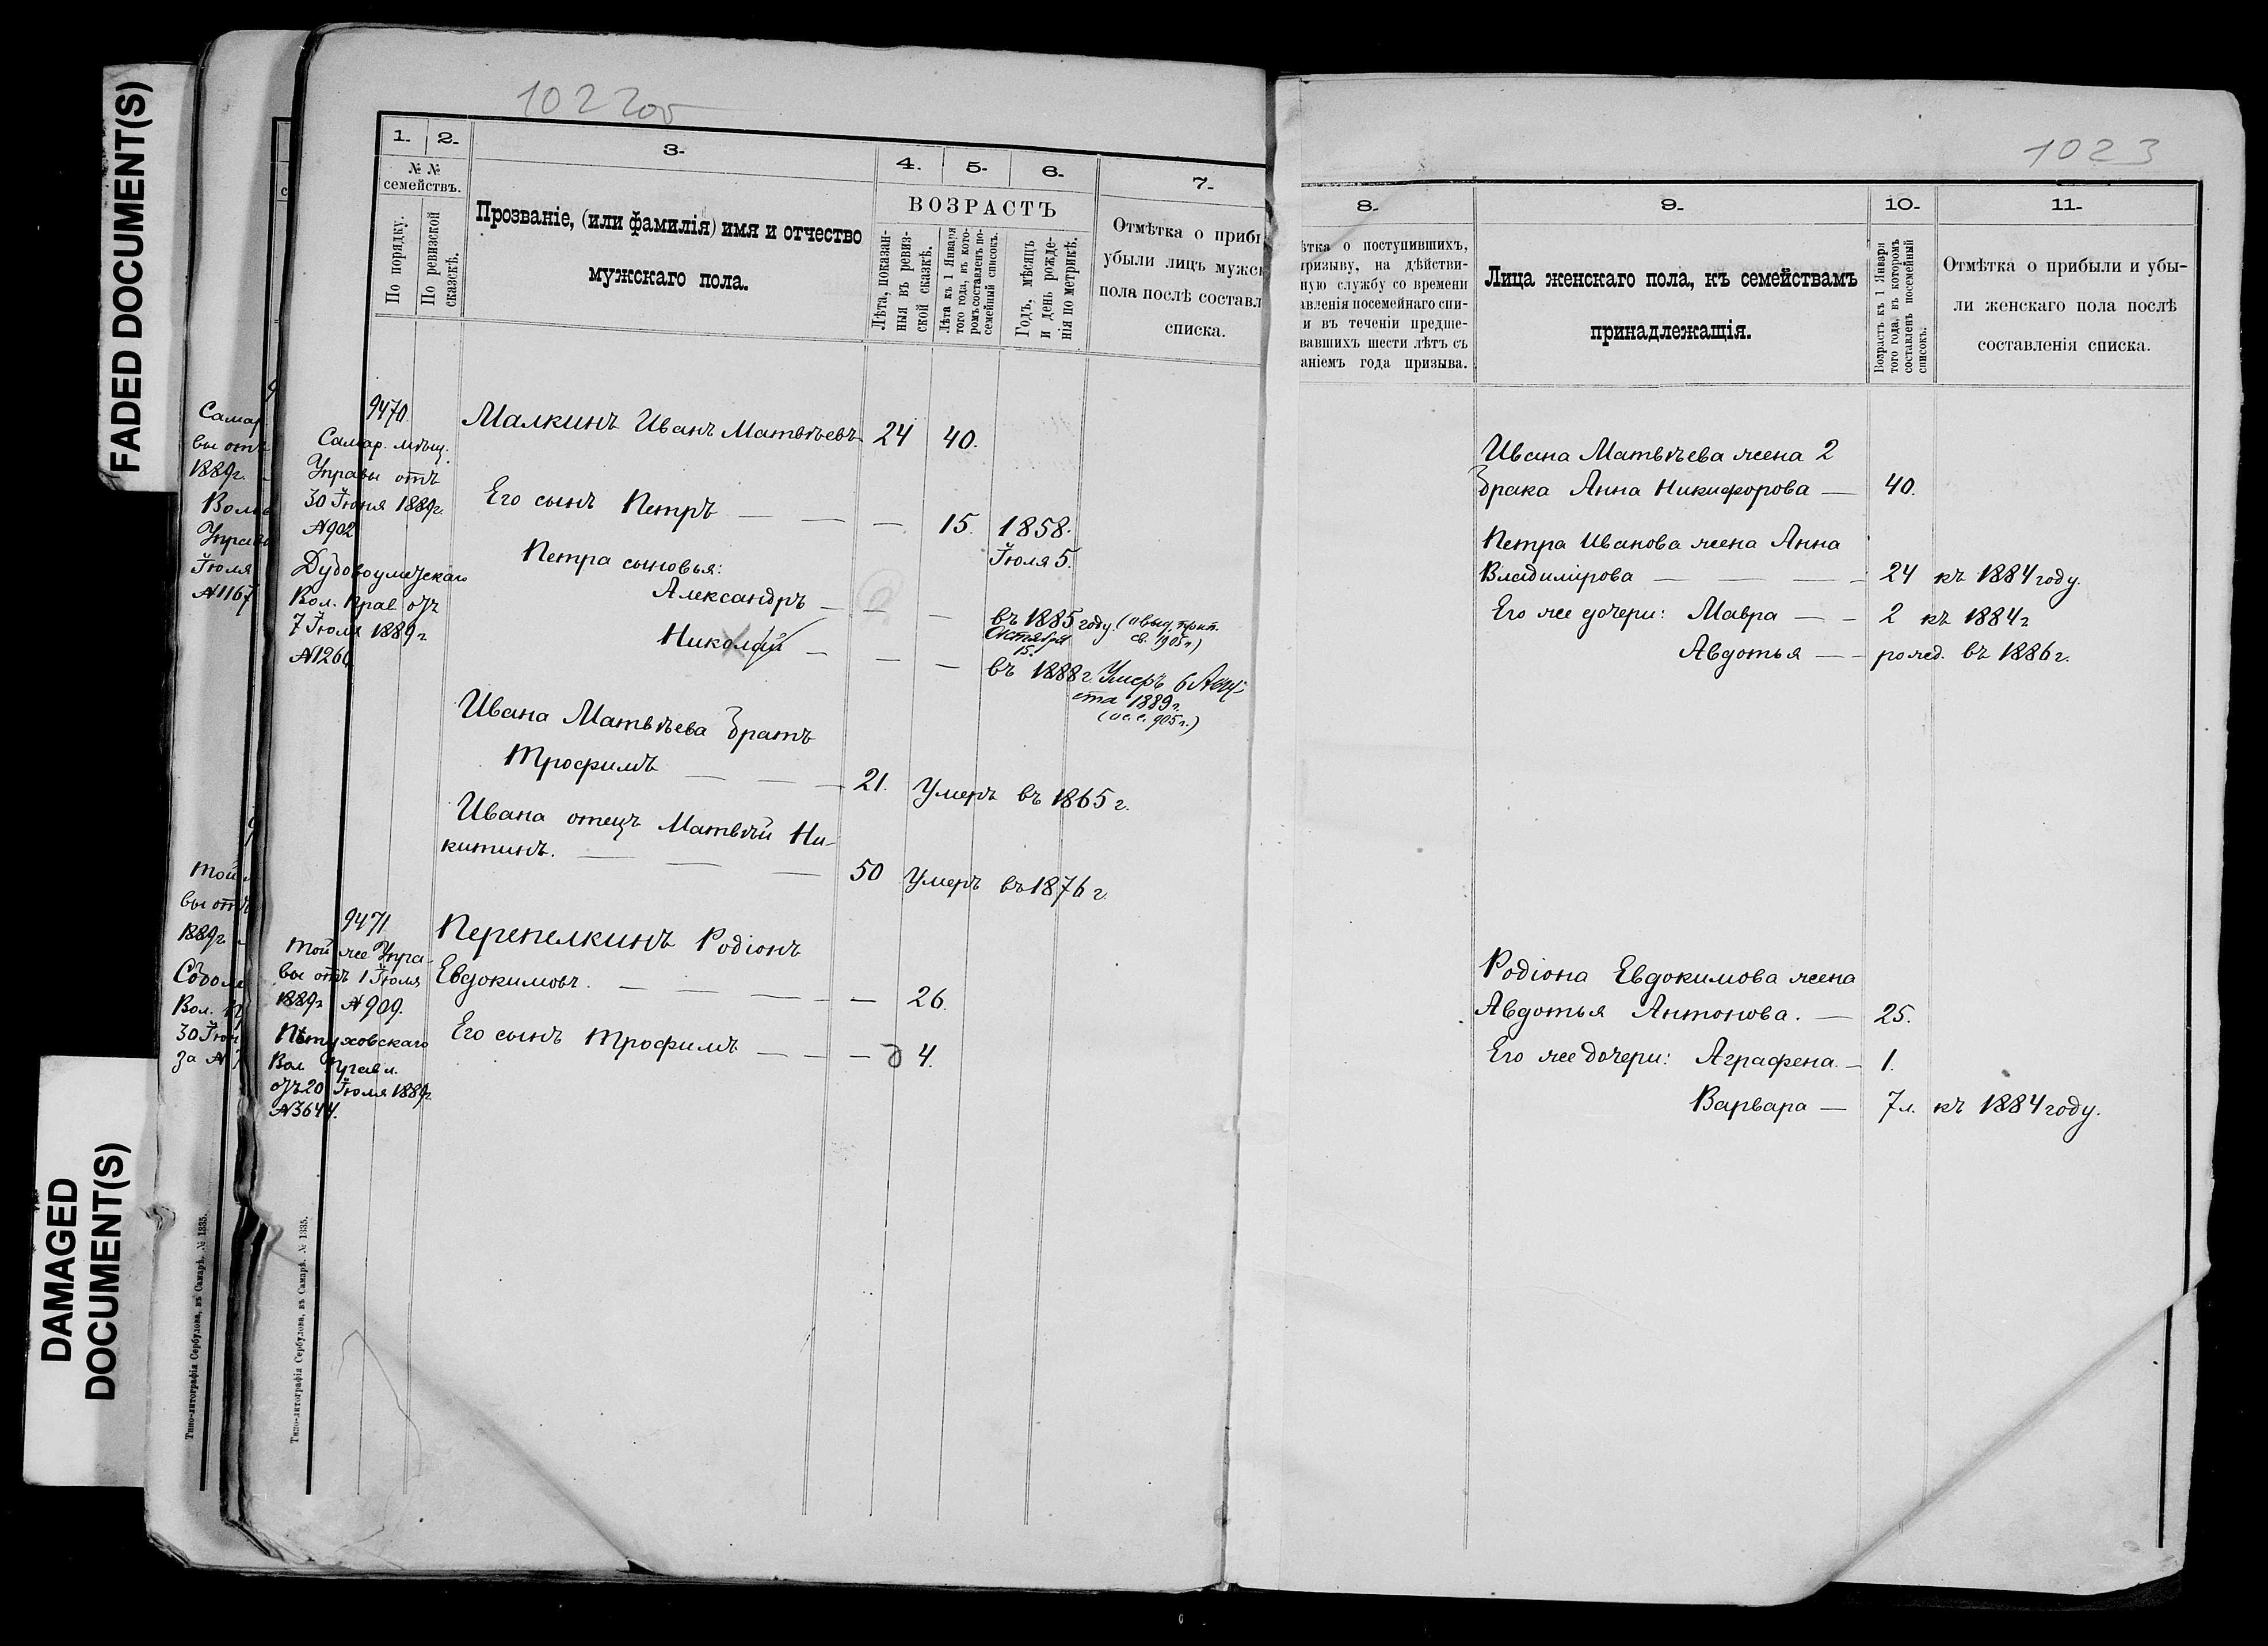 FADED DOCUMENT(S)
DAMAGED
DOCUMENT(S)
Самар
вы отъ
1889г.
Воль
Управ
Іюля
№1167
Той
вы отъ
1889г
Вол.
30 Іюн
за №
Типо-литографія Сербулова, въ Самарѣ. № 1335.
1022об
1. 2. 3. 4. 5. 6. 7.
№ №
семействъ.
По порядку.
По ревизской
сказкѣ.
Прозваніе, (или фамилія) имя и отчество
мужскаго пола.
ВОЗРАСТЪ
Лѣта, показан-
ныя въ ревиз-
ской сказкѣ.
Лѣта къ 1 Января
того года, въ кото-
ромъ составленъ по-
семейный списокъ.
Годъ, мѣсяцъ
и день рожде-
нія по метрикѣ.
Отмѣтка о прибы
убыли лицъ мужск
пола послѣ составл
списка.
9470.
Самар. мѣщ.
Управы отъ
30 Іюня 1889г.
№902
Дубовоуметскаго
Вол. Прав отъ
7 Іюля 1889г
№126
Малкинъ Иванъ Матвѣевъ 24 40.
Его сынъ Петръ — — — 15. 1858.
Іюля 5.
Петра сыновья:
Александръ — — — въ 1885 году.
Октября
15.
св. 1905г)
Николай — — — въ 1888г. Умеръ 6 Авгу-
ста 1889г.
905г.)
Ивана Матвѣева братъ
Трофимъ — — — 21. Умеръ въ 1865г.
Ивана отецъ Матвѣй Ни-
китинъ. — — — 50 Умеръ въ 1876г.
9471
Той же Упра-
вы отъ 1 Іюля
1889г №909.
Петуховскаго
Вол. Правл.
отъ 20 Іюля 1889г
№3644.
Перепелкинъ Родіонъ
Евдокимовъ. — — — — — 26.
Его сынъ Трофимъ — — — 4.
Типо-литографія Сербулова, въ Самарѣ. № 1335.
1023
8. 9. 10. 11.
ѣтка о поступившихъ,
призыву, на дѣйстви-
ную службу со времени
авленія посемейнаго спи-
и въ теченіи предше-
вавшихъ шести лѣтъ съ
аніемъ года призыва.
Лица женскаго пола, къ семействамъ
принадлежащія.
Возрастъ къ 1 Января
того года, въ которомъ
составленъ посемейный
списокъ.
Отмѣтка о прибыли и убы-
ли женскаго пола послѣ
составленія списка.
Ивана Матвѣева жена 2
брака Анна Никифорова — 40.
Петра Иванова жена Анна
Владимірова — — — — 24 къ 1884 году.
Его же дочери: Мавра — — 2 къ 1884г
Авдотья — — рожд. въ 1886г.
Родіона Евдокимова жена
Авдотья Антонова. — 25.
Его же дочери: Аграфена. — 1.
Варвара — 7л. къ 1884 году.